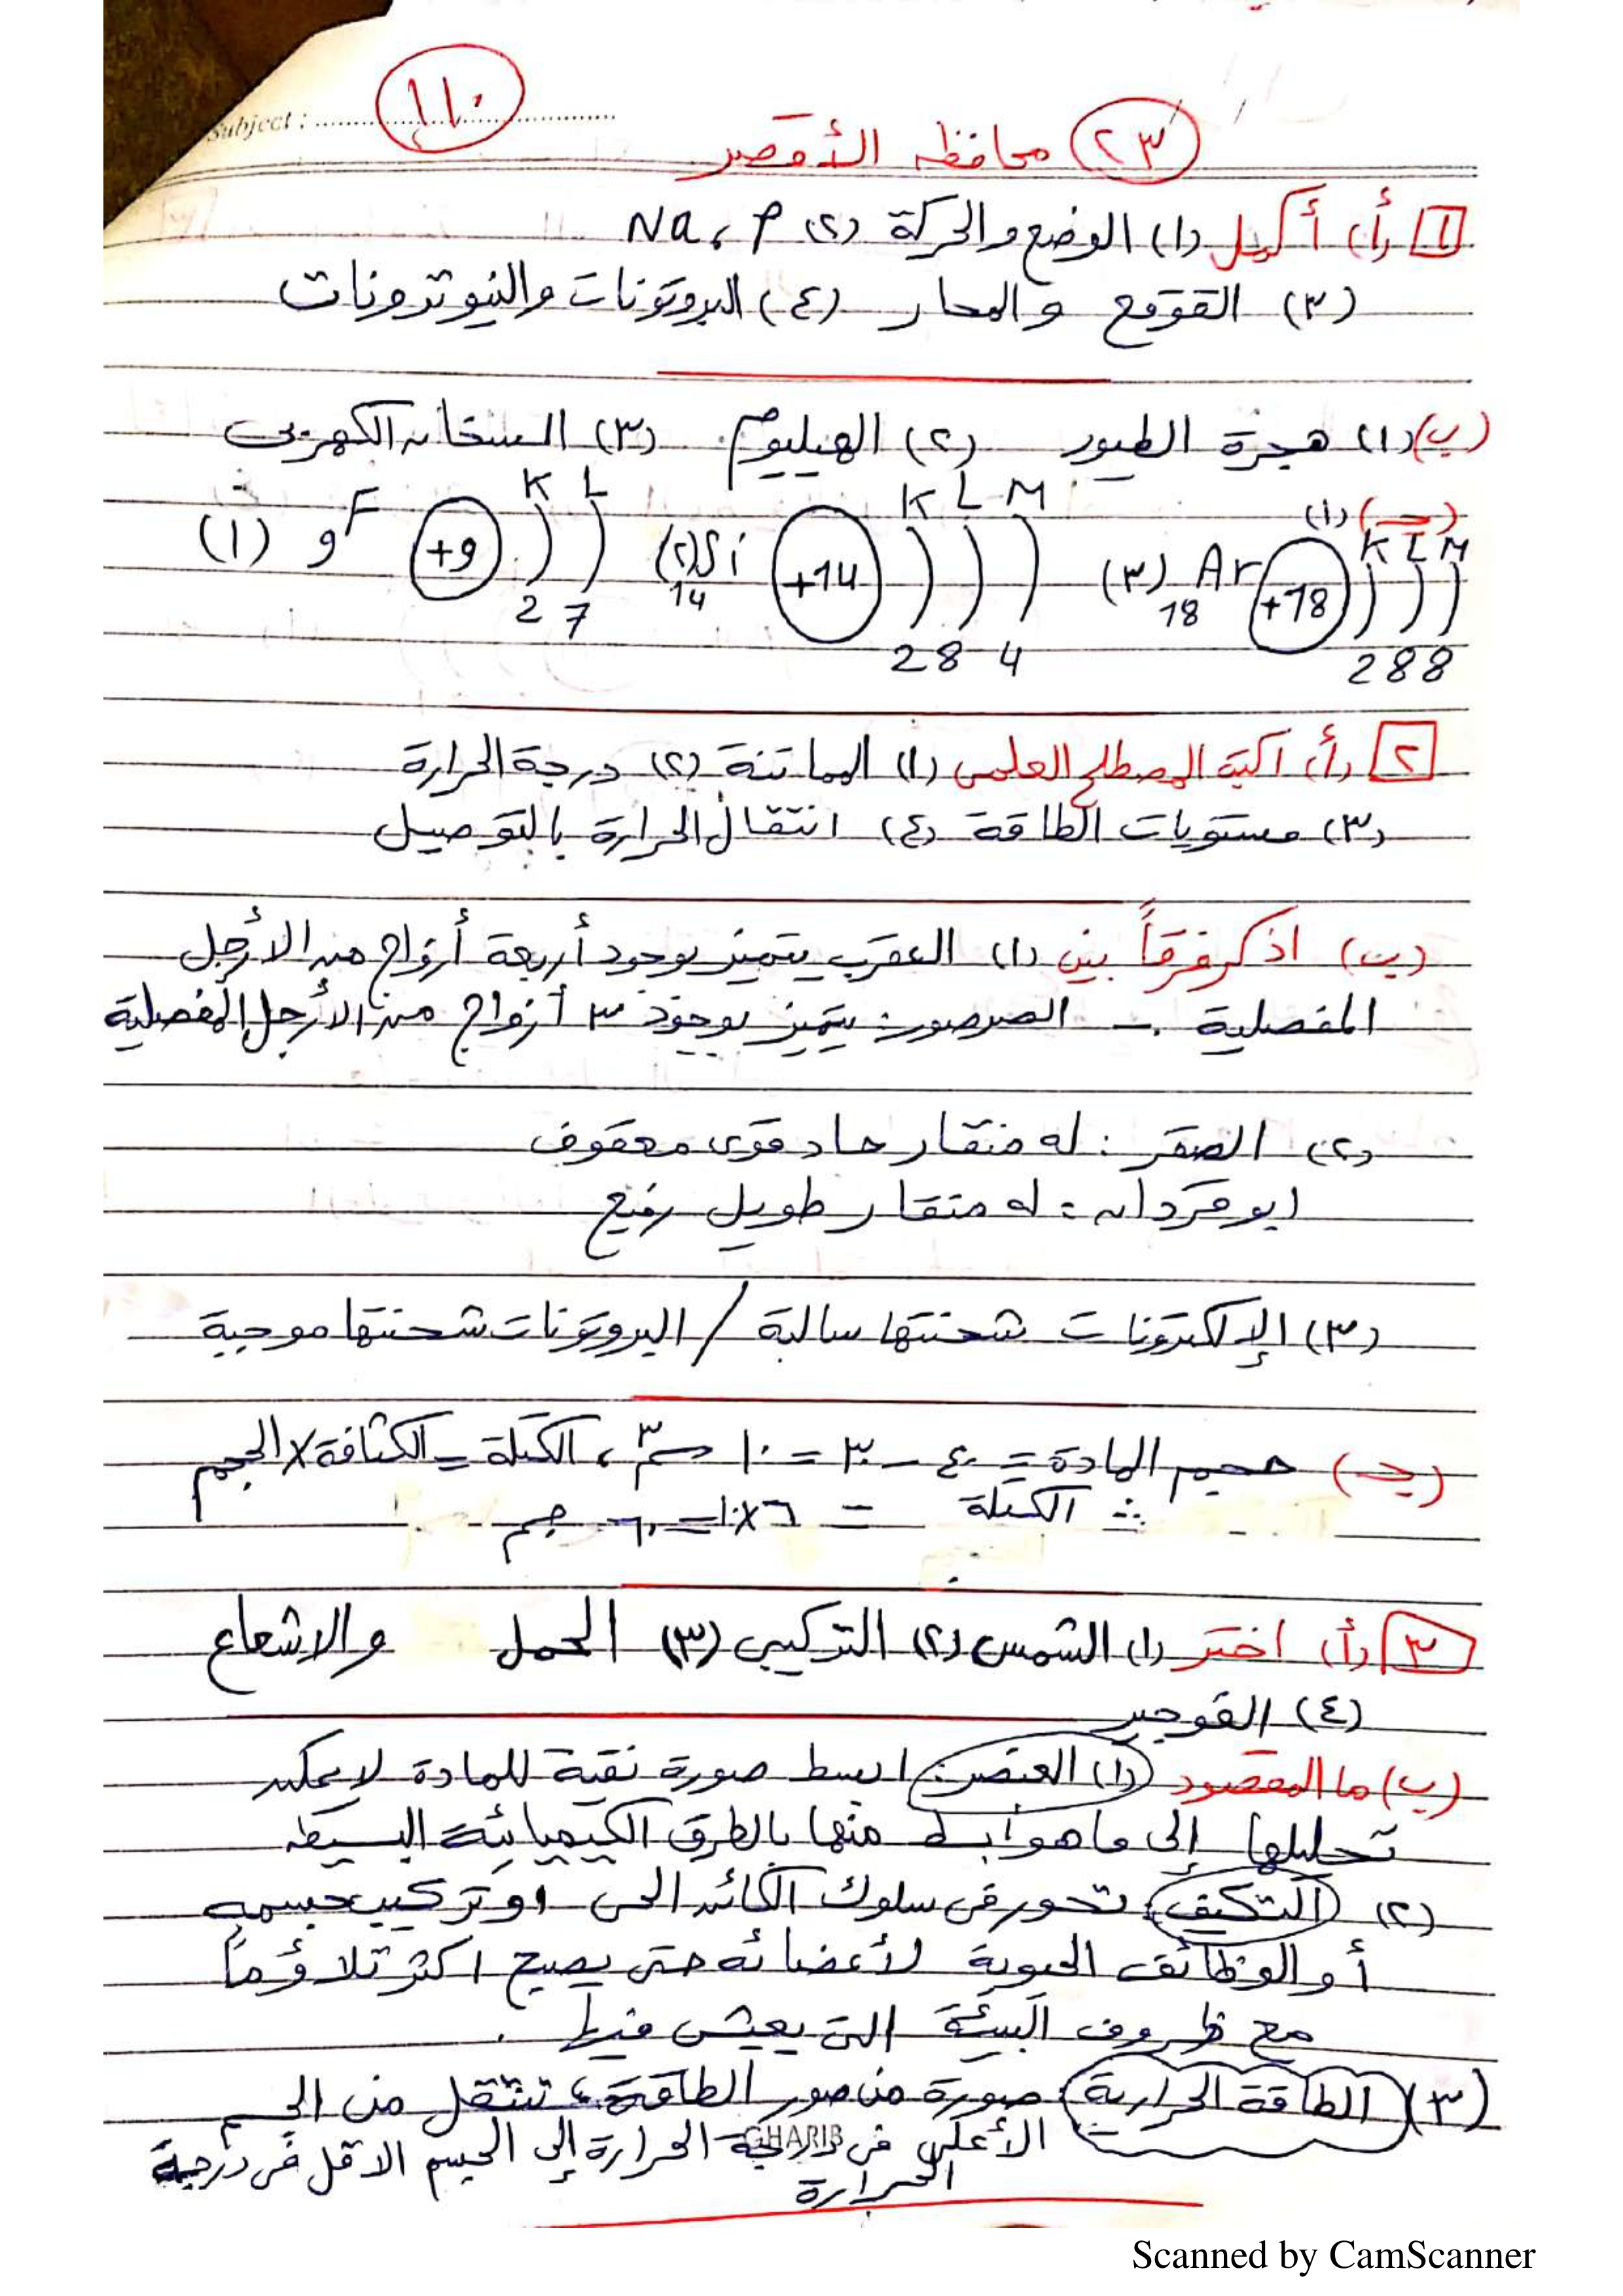 Subject : ........................ ١١٠
٢٣ محافظه الأقصر
١ (أ) أكمل (١) الوضع والحركة (٢) Na , P
(٣) القوقع والمحار (٤) البروتونات والنيوترونات
(ب) (١) هجرة الطيور (٢) الهيليوم (٣) السخان الكهربى
(جـ) (١)
(١) 9F +9 K L 2 7 (٢) Si 14 +14 K L M 2 8 4 (٣) Ar 18 +18 K L M 2 8 8
٢ (أ) اكتب المصطلح العلمى (١) المماتنة (٢) درجة الحرارة
(٣) مستويات الطاقة (٤) انتقال الحرارة بالتوصيل
(ب) اذكر فرقاً بين (١) العقرب يتميز بوجود أربعة أزواج من الأرجل
المفصلية - الصرصور: يتميز بوجود ٣ أزواج من الأرجل المفصلية
(٢) الصقر : له منقار حاد قوى معقوف
ابو قردان : له منقار طويل رفيع
(٣) الإلكترونات شحنتها سالبة / البروتونات شحنتها موجبة
(جـ) حجم المادة = ٤٠ - ٣٠ = ١٠ سم٣ ، الكتلة = الكثافة × الحجم
∴ الكتلة = ٦ × ١٠ = ٦٠ جم
٣ (أ) اختر (١) الشمس (٢) التركيبى (٣) الحمل والاشعاع
(٤) القوجير
(ب) ما المقصود (١) العنصر: ابسط صورة نقية للمادة لا يمكن
تحليلها إلى ما هو أبسط منها بالطرق الكيميائية البسيطه
(٢) التكيف: تحور فى سلوك الكائن الحى او تركيب جسمه
أو الوظائف الحيوية لأعضائه حتى يصبح اكثر تلاؤماً
مع ظروف البيئة التى يعيش فيها .
(٣) الطاقة الحرارية: صورة من صور الطاقة ، تنتقل من الجسم
الأعلى فى درجة الحرارة إلى الجسم الاقل فى درجة
الحرارة
GHARIB
Scanned by CamScanner